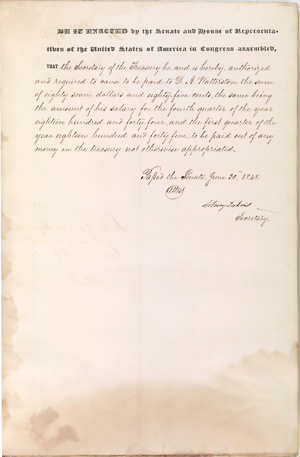 BE IT ENACTED by the Senate and House of Representa-
tives of the United States of America in Congress assembled,
THAT the Secretary of the Treasury be and is hereby, authorized
and required to cause to be paid to D. A. Watterston the sum
of eighty seven dollars and eighty five cents, the same being
the amount of his salary for the fourth quarter of the year
eighteen hundred and forty four, and the first quarter of the
year eighteen hundred and forty five, to be paid out of any
money in the treasury not otherwise appropriated.
Passed the Senate, June 30th, 1848.
Attest
Secretary.